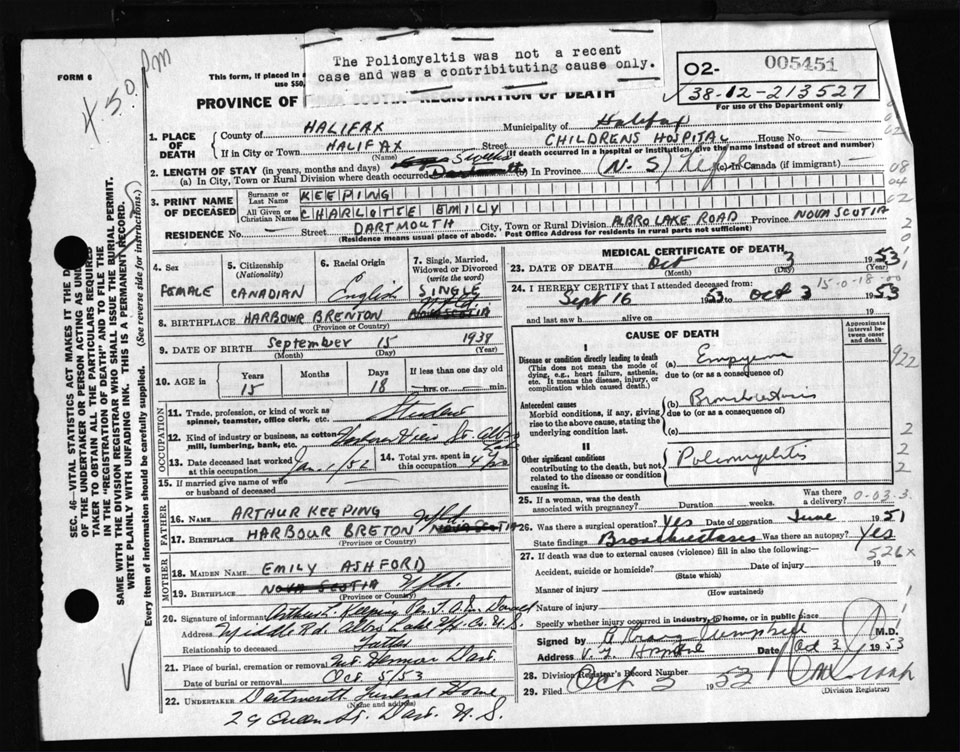 The Poliomyeltis was not a recent
case and was a contribituting cause only.
4.50 pm
FORM 6
This form, if placed in a
use $50,
02- 005451
38-12-213527
For use of the Department only
PROVINCE OF SCOTIA REGISTRATION OF DEATH
1. PLACE OF DEATH
County of HALIFAX Municipality of Halifax
If in City or Town HALIFAX Street CHILDRENS HOSPITAL House No.
(Name) (If death occurred in a hospital or institution, give the name instead of street and number)
2. LENGTH OF STAY (in years, months and days)
(a) In City, Town or Rural Division where death occurred (b) In Province (N.S) In Canada (if immigrant) —
3. PRINT NAME OF DECEASED
Surname or Last Name KEEPING
All Given or Christian Names CHARLOTTE EMILY
RESIDENCE No. — Street DARTMOUTH City, Town or Rural Division ALBRO LAKE ROAD Province NOVA SCOTIA
(Residence means usual place of abode. Post Office Address for residents in rural parts not sufficient)
4. Sex FEMALE
5. Citizenship (Nationality) CANADIAN
6. Racial Origin English
7. Single, Married, Widowed or Divorced (write the word) SINGLE
8. BIRTHPLACE HARBOUR BRENTON Nfld. NOVA SCOTIA
(Province or Country)
9. DATE OF BIRTH September 15 1938
(Month) (Day) (Year)
10. AGE in Years 15 Months Days 18 If less than one day old hrs. or min.
OCCUPATION
11. Trade, profession, or kind of work as spinner, teamster, office clerk, etc. Student
12. Kind of industry or business, as cotton mill, lumbering, bank, etc.
13. Date deceased last worked at this occupation Jan. 1/52
14. Total yrs. spent in this occupation 4 yrs
15. If married give name of wife or husband of deceased
FATHER
16. NAME ARTHUR KEEPING
17. BIRTHPLACE HARBOUR BRETON Nfld. NOVA SCOTIA
MOTHER
18. MAIDEN NAME EMILY ASHFORD
19. BIRTHPLACE NOVA SCOTIA Nfld.
(Province or Country)
20. Signature of informant Arthur Keeping
Address Middle Rd. Albro Lake Hfx. Co. N.S.
Relationship to deceased Father
21. Place of burial, cremation or removal Mt. Hermon Dart.
Date of burial or removal Oct. 5/53
22. UNDERTAKER Dartmouth Funeral Home
(Name and address)
29 Queen St. Dart. N.S.
MEDICAL CERTIFICATE OF DEATH
23. DATE OF DEATH Oct 3 1953
(Month) (Day) (Year)
24. I HEREBY CERTIFY that I attended deceased from:
Sept 16 1953 to Oct 3 1953
15-0-18
and last saw h alive on 19
CAUSE OF DEATH
Approximate interval between onset and death
I
Disease or condition directly leading to death
(This does not mean the mode of dying, e.g., heart failure, asthenia, etc. It means the disease, injury, or complication which caused death.)
(a) Empyema
due to (or as a consequence of)
Antecedent causes
Morbid conditions, if any, giving rise to the above cause, stating the underlying condition last.
(b) Bronchiectasis
due to (or as a consequence of)
(c)
II
Other significant conditions
contributing to the death, but not related to the disease or condition causing it.
Poliomyelitis
25. If a woman, was the death associated with pregnancy? Duration weeks. Was there a delivery? 0-03-3
26. Was there a surgical operation? Yes Date of operation June 1951
State findings Bronchiectases Was there an autopsy? Yes
526x
27. If death was due to external causes (violence) fill in also the following:—
Accident, suicide or homicide? Date of injury 19
(State which)
Manner of injury
(How sustained)
Nature of injury
Specify whether injury occurred in industry, in home, or in public place
Signed by M.D.
Address V. G. Hospital Date Oct 3 1953
28. Division Registrar's Record Number
29. Filed Oct 5 1953
(Division Registrar)
SEC. 46—VITAL STATISTICS ACT MAKES IT THE D
OF THE UNDERTAKER OR PERSON ACTING AS UND
TAKER TO OBTAIN ALL THE PARTICULARS REQUIRED
IN THE "REGISTRATION OF DEATH" AND TO FILE THE
SAME WITH THE DIVISION REGISTRAR WHO SHALL ISSUE THE BURIAL PERMIT.
WRITE PLAINLY WITH UNFADING INK. THIS IS A PERMANENT RECORD.
Every item of information should be carefully supplied. (See reverse side for instructions.)